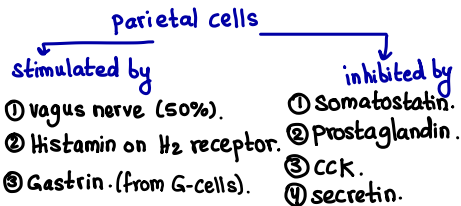 Parietal cells
stimulated by
① vagus nerve (50%).
② Histamin on H2 receptor.
③ Gastrin. (from G-cells).
inhibited by
① Somatostatin.
② Prostaglandin.
③ CCK.
④ secretin.